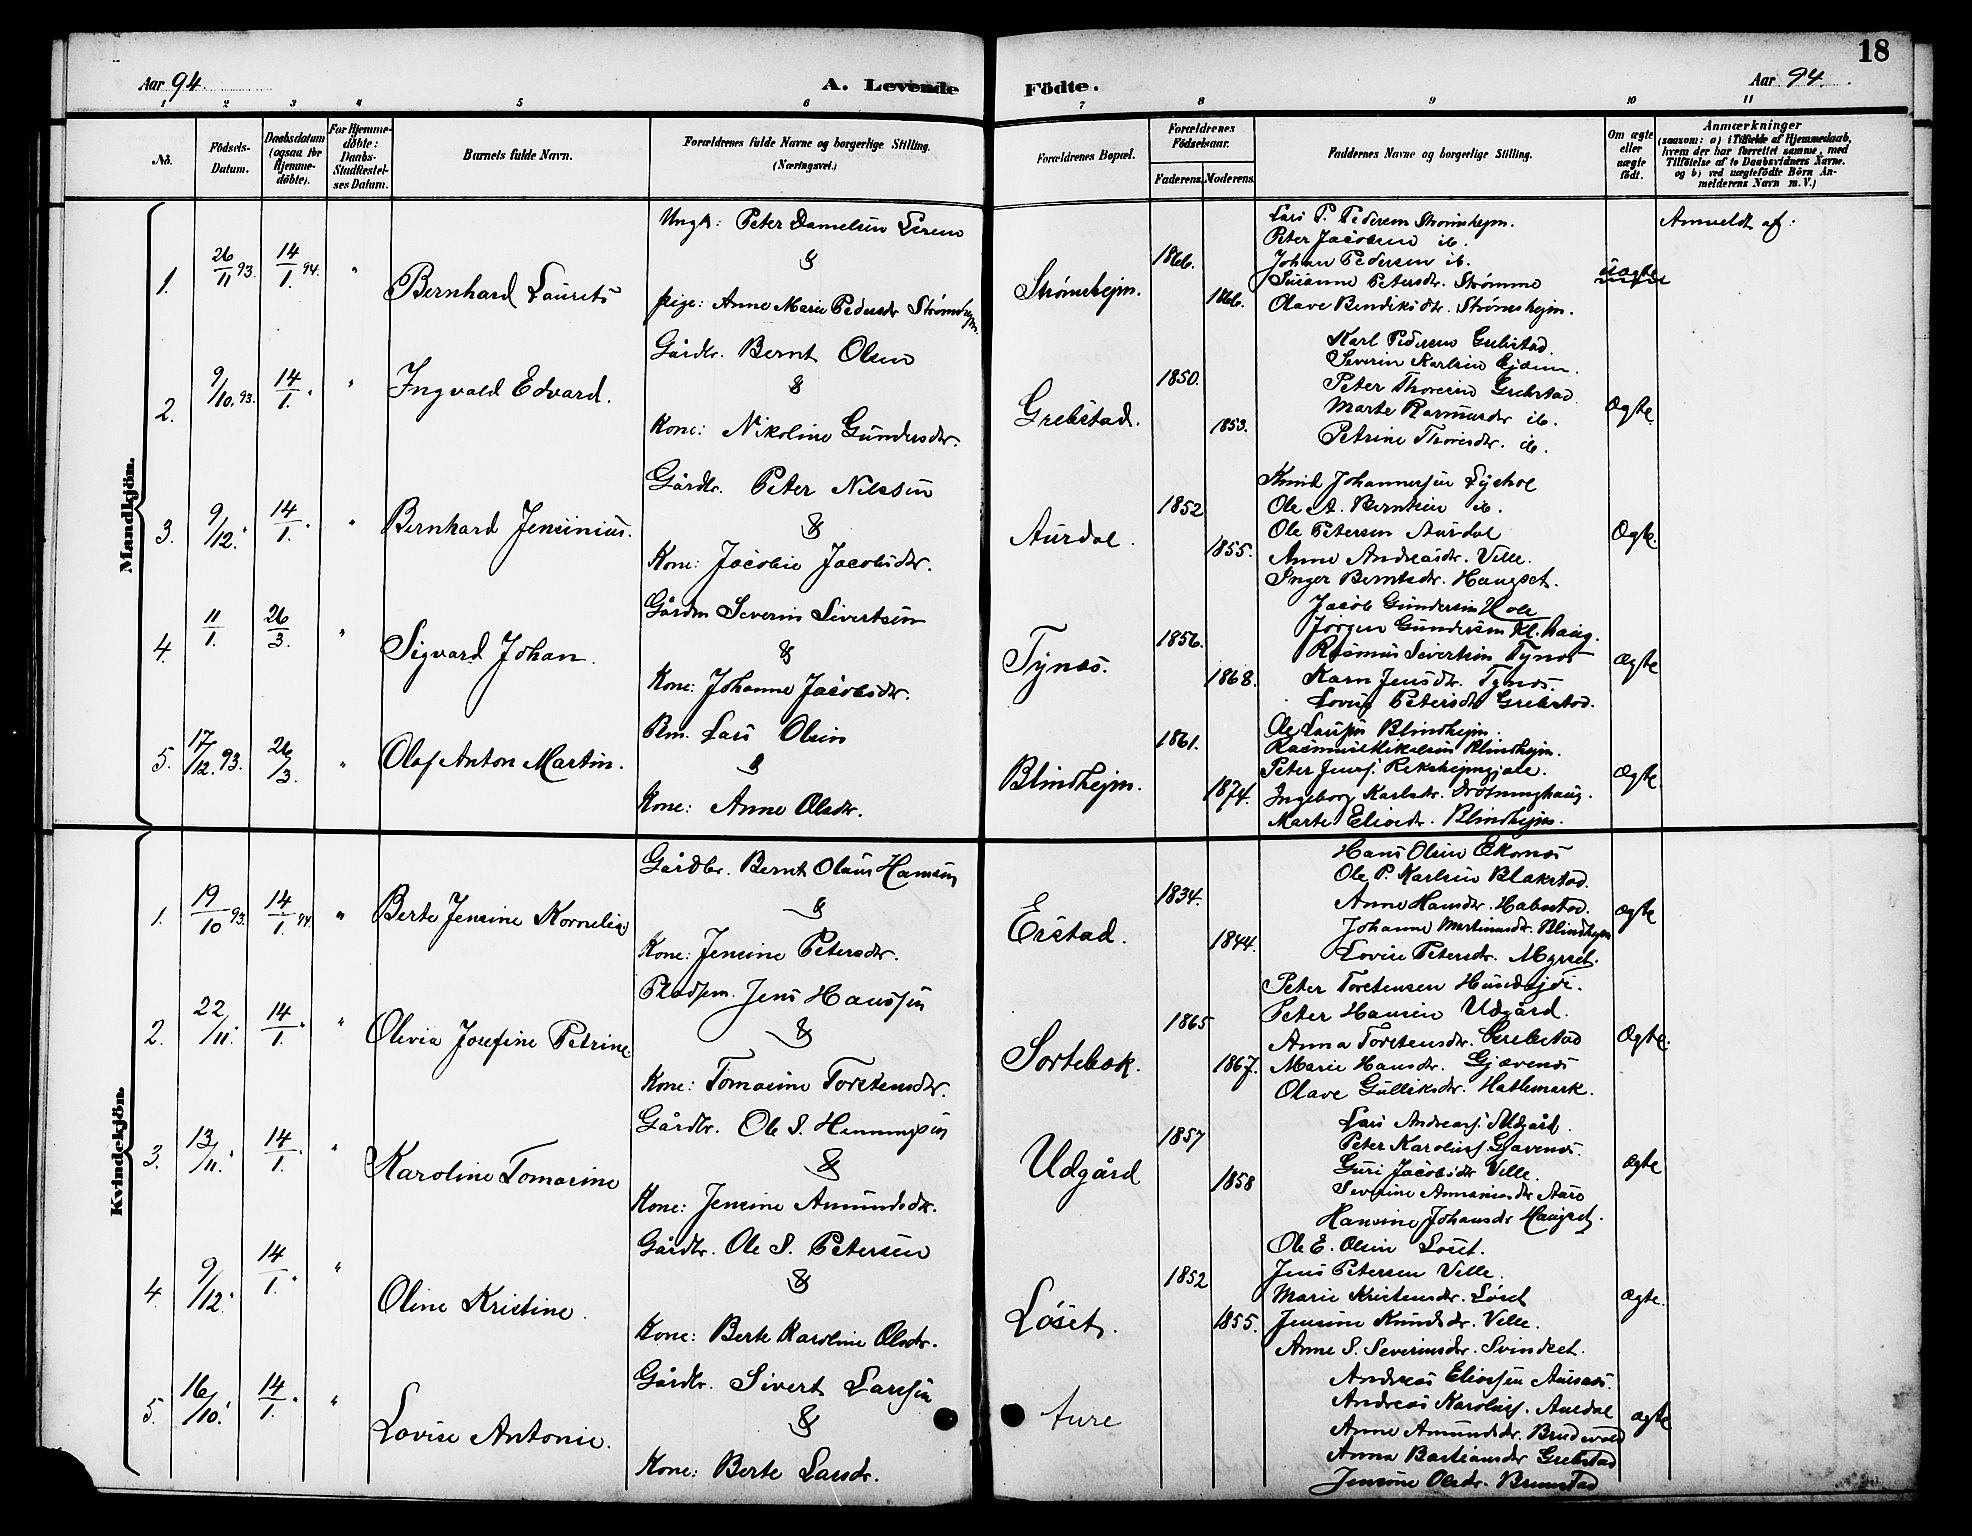 18
Aar 94.
A. Levende Fødte.
Aar 94.
1 2 3 4 5 6 7 8 9 10 11
No.
Fødsels-
Datum.
Daabsdatum
(ogsaa for
Hjemme-
døbte).
For Hjemme-
døbte:
Daabs-
Stadfæstel-
ses Datum.
Barnets fulde Navn.
Forældrenes fulde Navne og borgerlige Stilling.
(Næringsvei.)
Forældrenes Bopæl.
Forældrenes
Fødselsaar.
Faderens. Moderens.
Faddernes Navne og borgerlige Stilling.
Om ægte
eller
uægte
født.
Anmærkninger
(saasom: a) i Tilfælde af Hjemmedaab,
hvem der har forrettet samme, med
Tilføielse af to Daabsvidners Navne.
og b) ved uægtefødte Børn An-
melderens Navn m. V.)
Mandkjön.
1.
26/11 93.
14/1. 94.
"
Bernhard Laurits
Ungk: Peter Danielsen
&
pige: Anne Marie Pedersdr Strømshejm.
Strømshejm.
1866.
1866.
Lars P. Pedersen Strømshejm.
Peter Jacobsen ib.
Johan Pedersen ib.
Susanne Petersdr. Strømme
Olave Bendiksdtr. Strømshejm.
uægte
Anmeldt af:
2.
9/10. 93.
14/1. "
"
Ingvald Edvard.
Gårdbr. Bernt Olsen
&
Kone: Nikoline Gundersdr.
Grebstad.
1850.
1853.
Karl Pedersen Grebstad.
Severin Karlsen
Peter Thoresen Grebstad
Marte Rasmusdr ib.
Petrine Thoresdr. ib.
Ægte
3.
9/12. "
14/1. "
"
Bernhard Jensinius.
Gårdbr. Peter Nilssen
&
Kone: Jacobie Jacobsdr.
Aurdal.
1852
1855.
Knud Johannessen
Ole A. Berntsen ib.
Ole Petersen Aurdal
Anne Andreasdr. Velle.
Inger Berntsdr. Haugset.
Ægte.
4.
11/1.
26/3.
"
Sigvard Johan.
Gårdm Severin Sivertsen
&
Kone: Johanne Jacobsdr.
Tynæs.
1856.
1868.
Jacob Gundersen Hole
Jørgen Gundersen Kl. haug.
Rasmus Sivertsen Tynæs
Karn Jensdr. Tynæs.
Lovise Petersdr Grebstad.
Ægte
5.
17/12. 93.
26/3.
"
Olaf Anton Martin.
Bm. Lars Olsen
&
Kone: Anne Olsdr.
Blindhejm.
1861.
1874.
Ole Larsen Blindhejm.
Rasmus Mikalsen Blindhejm.
Peter Jensf.
Ingeborg Karlsdr. Drotninghaug.
Marte Eliasdr. Blindhejm.
Ægte
Kvindekjön.
1.
19/10 93.
14/1. 94.
"
Berte Jensine Kornelia
Gårdbr. Bernt Olaus Hansen
&
Kone: Jensine Petersdr.
Erstad.
1834.
1844.
Hans Olsen Ekornæs
Ole P. Karlsen Blakstad.
Anne Hansdr.
Johanne Martinusdr. Blindhejm
Lovise Petersdr. Myrset.
Ægte
2.
22/11. "
14/1. "
"
Olivia Josefine Petrine
Pladsm. Jens Hanssen
&
Kone: Tomasine Torstensdr.
Sortebæk.
1865
1867.
Peter Torstensen
Peter Hansen Udgård.
Anna Torstensdr. Grebstad
Marie Hansdr. Gjævenæs
Olave Gulliksdr. Hathmark.
Ægte.
3.
13/11. "
14/1. "
"
Karoline Tomasine
Gårdbr. Ole S. Henningsen
&
Kone: Jensine Amundsdr.
Udgård
1857
1858
Lars Andreasf. Udgård.
Peter Karoliusf. Gjævenæs.
Guri Jacobsdr Velle.
Severine Annaniasdr Aure
Hansine Johansdr Haugset.
Ægte
4.
9/12. "
14/1. "
"
Oline Kristine.
Gårdbr. Ole S. Petersen
&
Kone: Berte Karoline Olsdr.
Løset.
1852
1855.
Ole E. Olsen Løset.
Jens Petersen Velle.
Marie Kristensdr. Løset
Jensine Knudsdr. Velle.
Anne S. Severinsdr. Svindset.
Ægte.
5.
16/10. "
14/1. "
"
Lovise Antonie.
Gårdbr. Sivert Larssen
&
Kone: Berte Larsdr.
Aure
Andreas Eliassen Aursnæs.
Andreas Karoliusf. Aurdal
Anne Amundsdr. Brudevold
Anna Bastiansdr Grebstad
Jensine Olsdr. Brunstad
Ægte